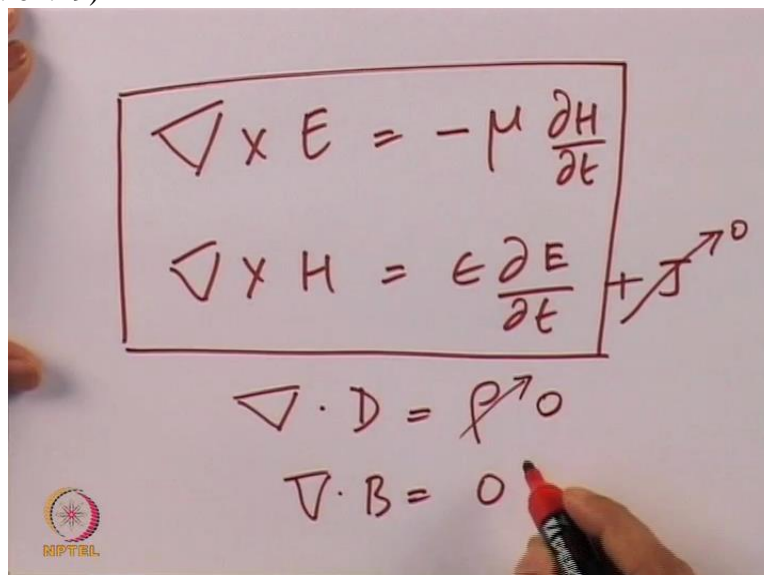 ∇ × E = - μ ∂H/∂t
∇ × H = ϵ ∂E/∂t + J → 0
∇ · D = ρ → 0
∇ · B = 0
NPTEL